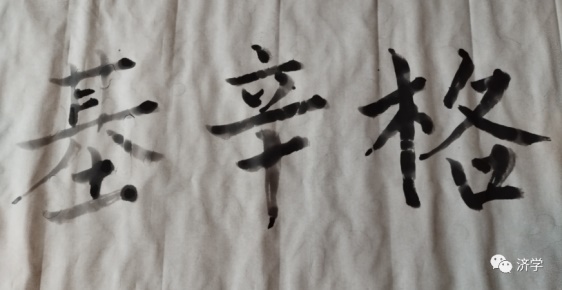 基辛格
济学